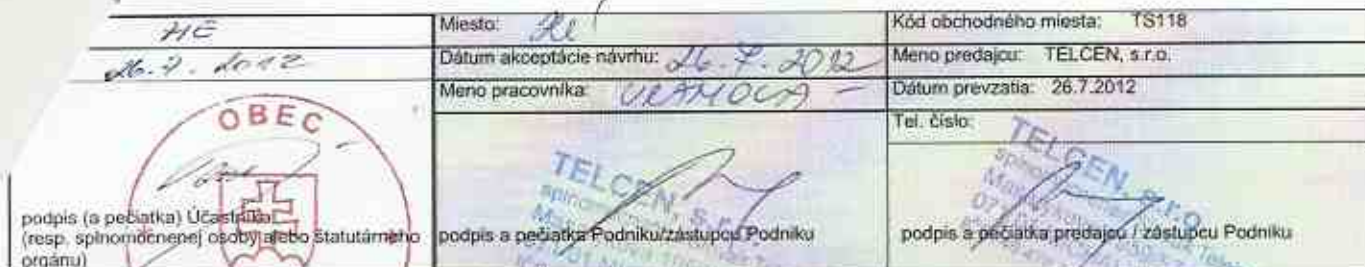 HE
26.7.2012
OBEC
podpis (a pečiatka) Účastníka
(resp. splnomocnenej osoby alebo štatutárneho
orgánu)
Miesto: HE
Dátum akceptácie návrhu: 26.7.2012
Meno pracovníka:
TELCEN, s.r.o.
podpis a pečiatka Podniku/zástupcu Podniku
Kód obchodného miesta: TS118
Meno predajcu: TELCEN, s.r.o.
Dátum prevzatia: 26.7.2012
Tel. číslo:
TELCEN, s.r.o.
podpis a pečiatka predajcu / zástupcu Podniku